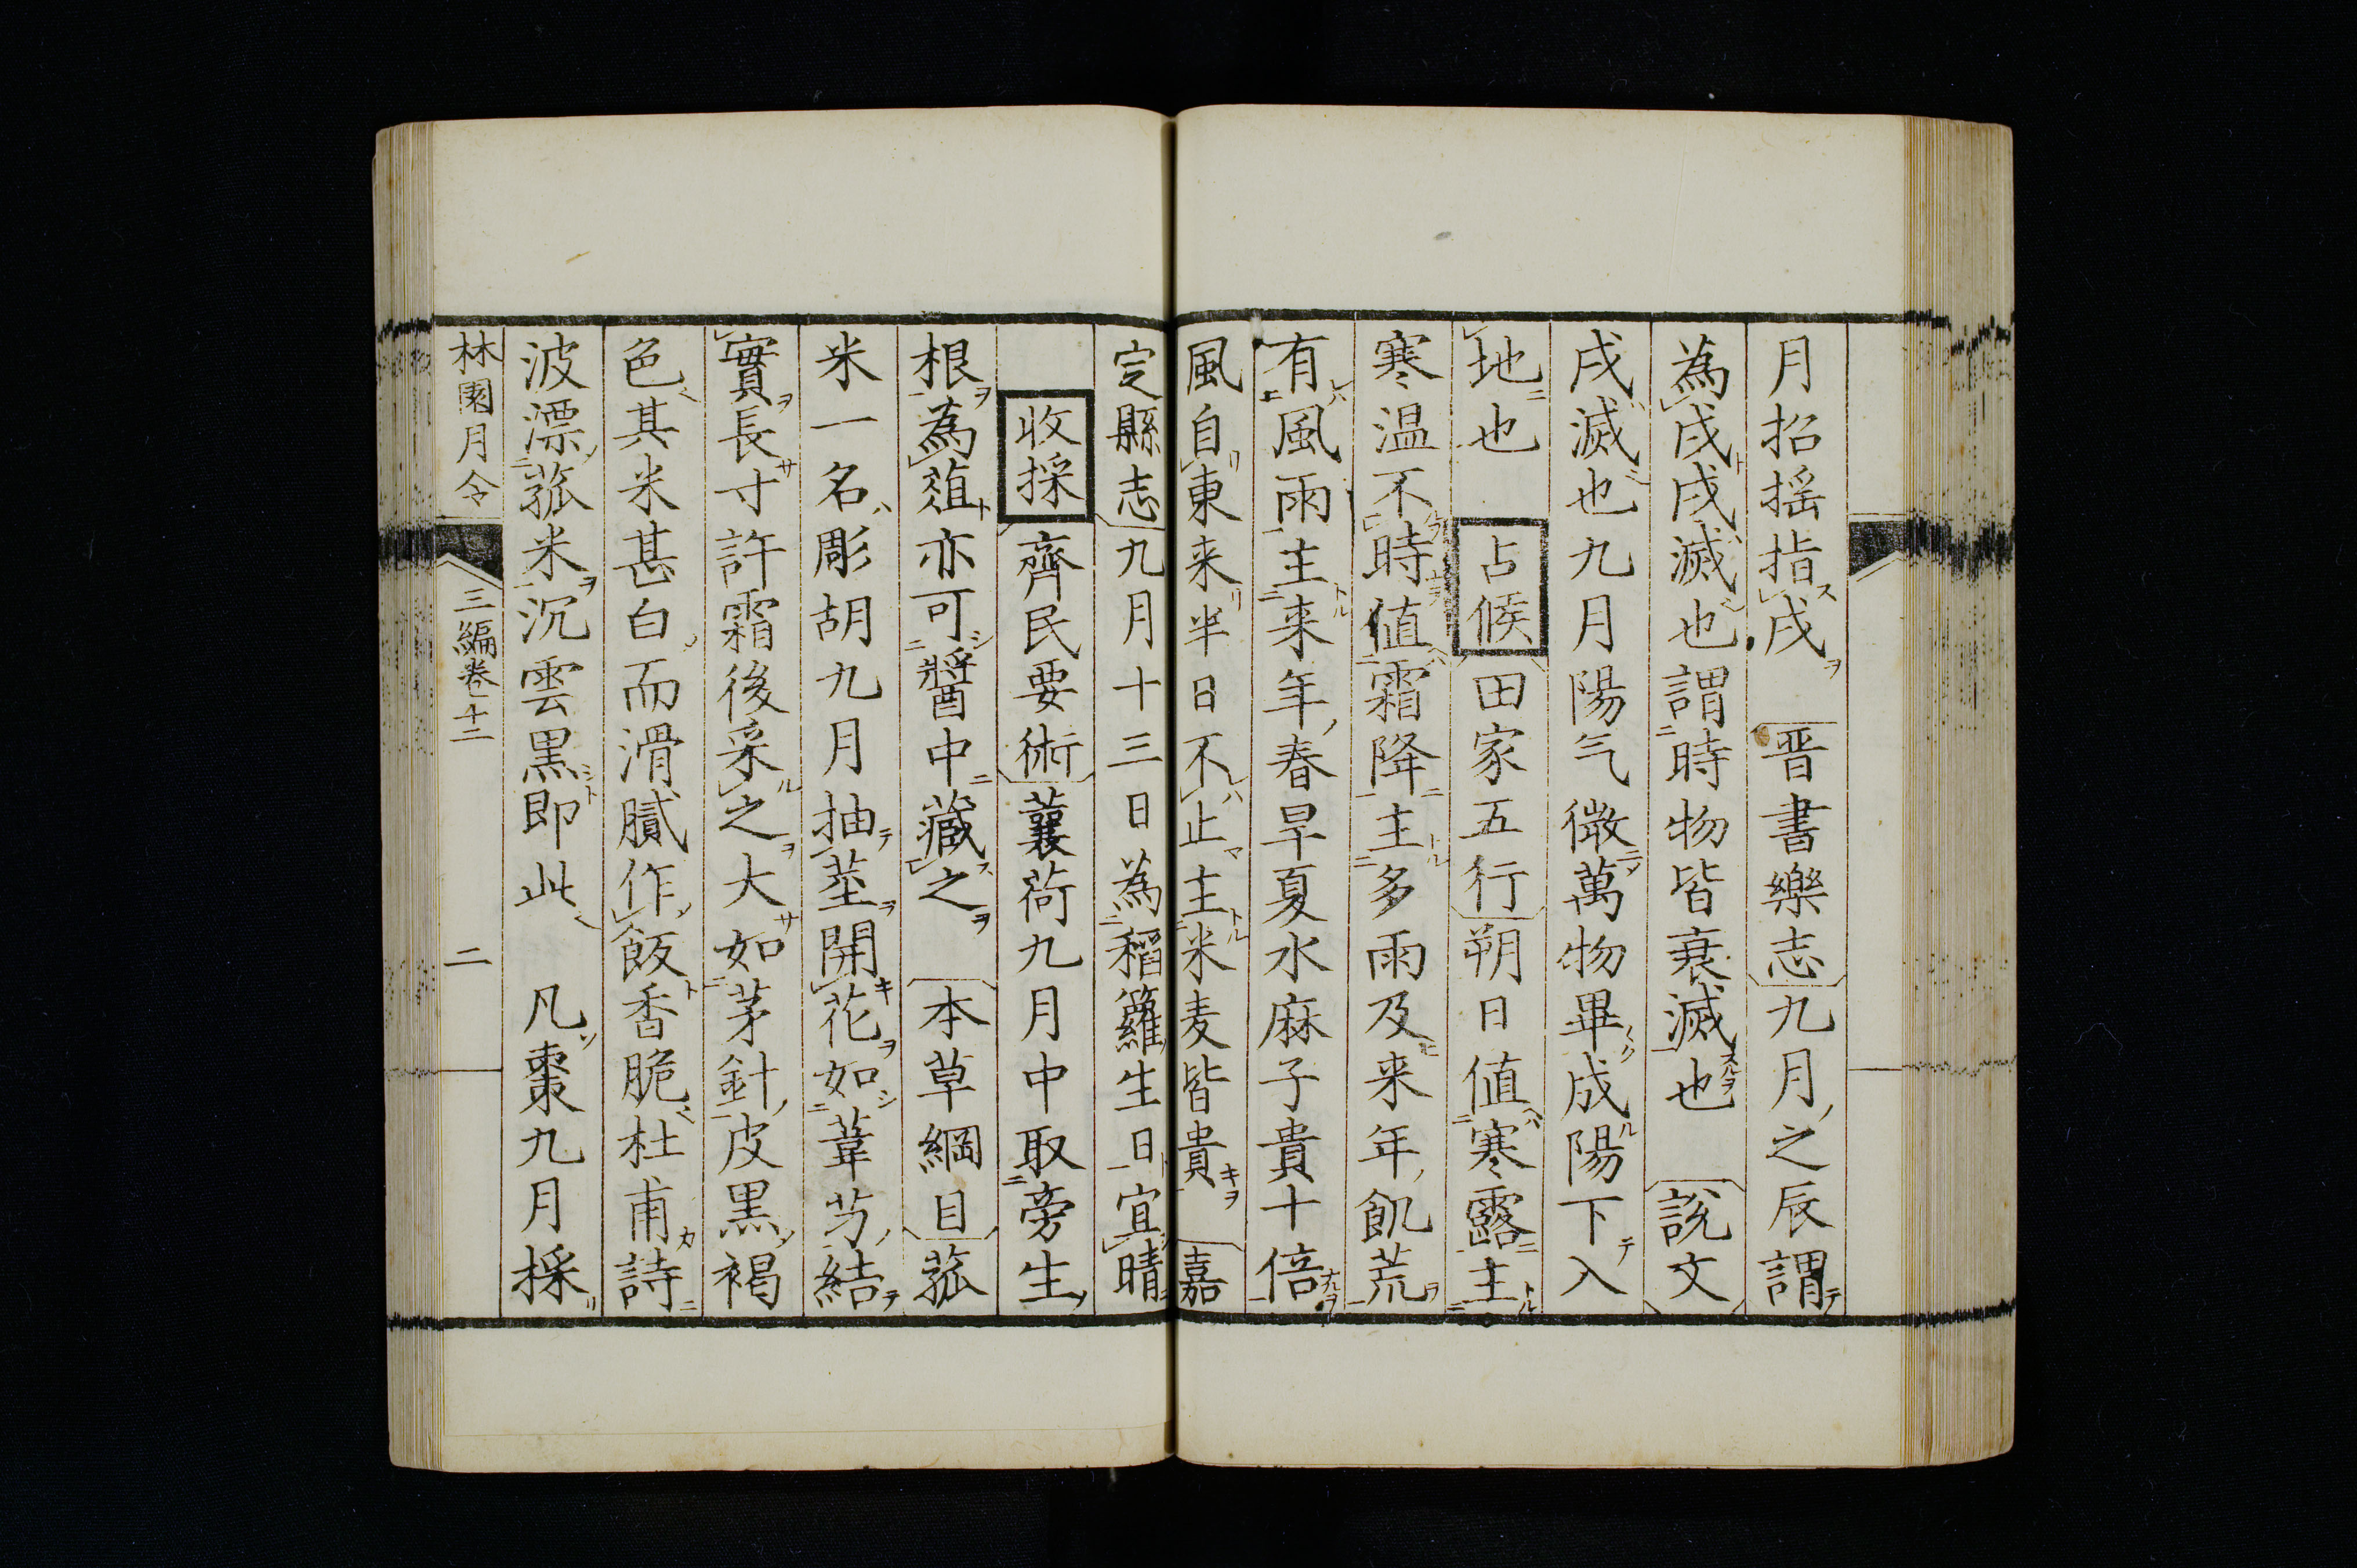 月招揺指戌　晋書樂志九月之辰謂
為戌戌滅也謂時物皆衰滅也　說文
戌滅也九月陽气微萬物畢成陽下入
地也　占候　田家五行朔日値寒露主
寒温不時値霜降主多雨及来年飢荒
有風雨主来年春旱夏水麻子貴十倍
風自東来半日不止主米麦皆貴　嘉
定縣志九月十三日為稻籮生日宜晴
收採　齊民要術蘘荷九月中取旁生
根為葅亦可醬中藏之　本草綱目菰
米一名彫胡九月抽莖開花如葦芀結
實長寸許霜後采之大如茅針皮黒褐
色其米甚白而滑膩作飯香脆杜甫詩
波漂菰米沉雲黒即此　凡棗九月採
林園月令　三編巻十二　二